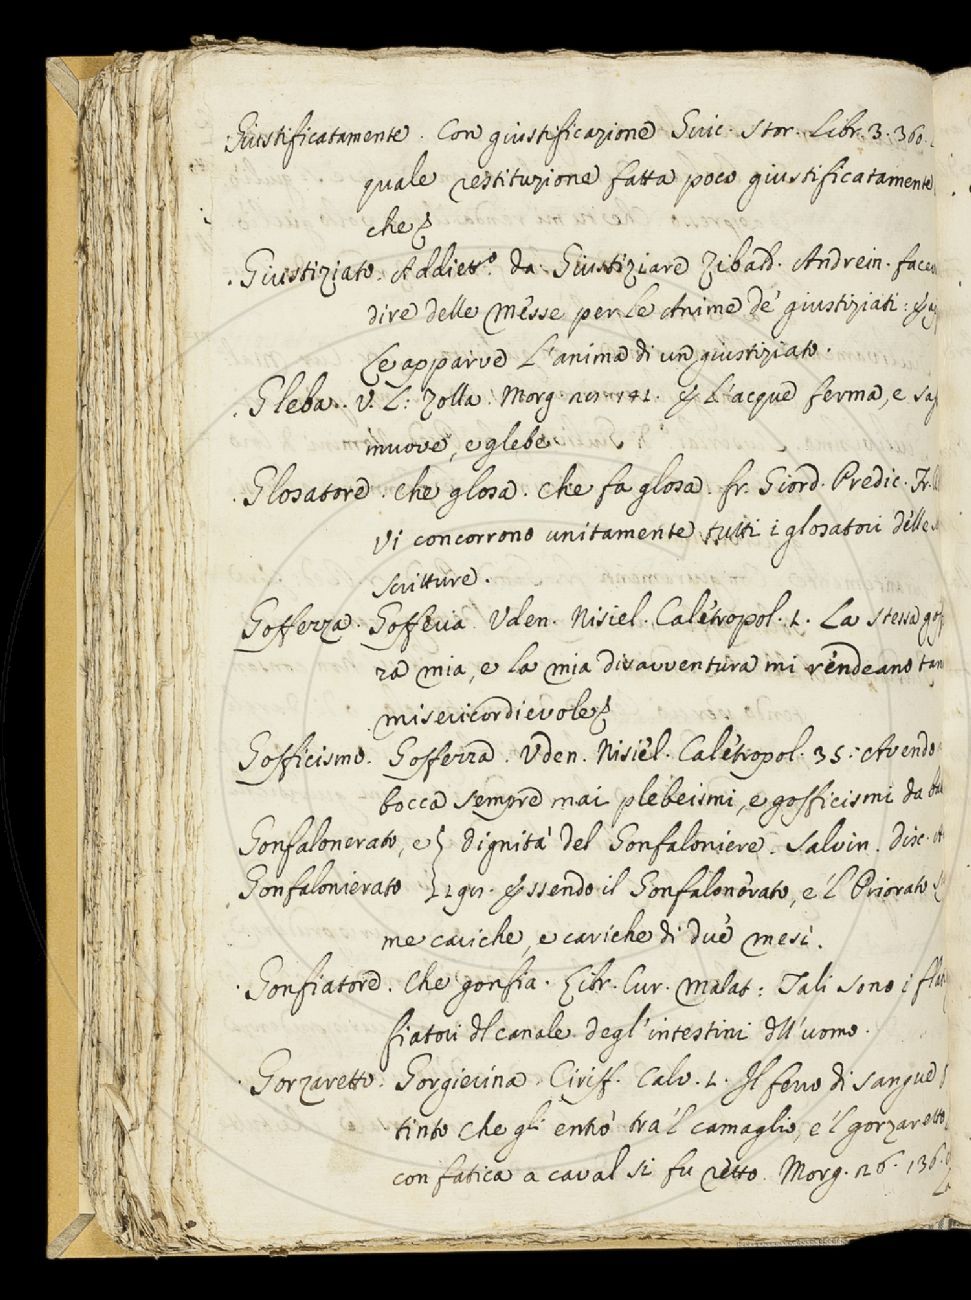 Giustificatamente. Con giustificazione Guic. Stor. Libr. 3. 360.
quale restituzione fatta poco giustificatamente
che
Giustiziato. Addiett.º da Giustiziare Zibald. Andrein.
dire delle Messe per le Anime de' giustiziati:
le apparve l'anima di un giustiziato.
Gleba. V. L. Zolla. Morg. L'acque ferma, e
muove, e glebe
Glosatore. che glosa. che fa glosa. fr. Giord. Predic.
vi concorrono unitamente tutti i glosatori delle
scritture.
Gofferza. Gofferia Uden. Nisiel. Caletropol. 1. La stessa
za mia, e la mia disavventura mi rendeano
misericordievole
Gofficismo. Gofferza. Uden. Nisiel. Caletropol. 35. Avendo
bocca sempre mai plebeismi, e gofficismi da
Gonfalonerato, e } dignità del Gonfaloniere. Salvin. Disc.
Gonfalonierato } Essendo il Gonfalonerato, e 'l Priorato
me cariche, e cariche di due mesi.
Gonfiatore. Che gonfia. Libr. Cur. Malat: Tali sono i
fiatori dl canale degl'intestini dll'uomo.
Gorzaretto. Gorgierina. Ciriff. Calv. 1. Il ferro di sangue
tinto che gli entrò tra 'l camaglio, e 'l gorzaretto
con fatica a caval si fu retto. Morg. 26. 136.